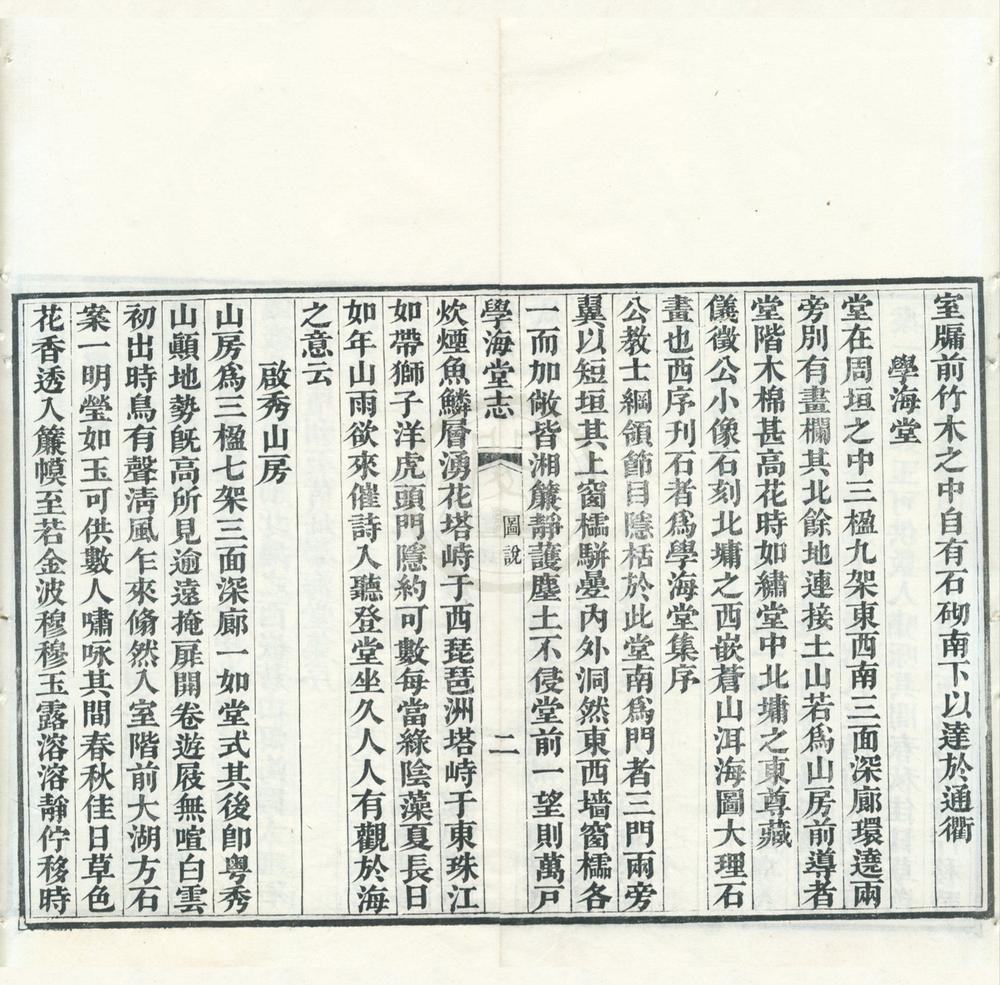 室牖前竹木之中自有石砌南下以達於通衢
學海堂
堂在周垣之中三楹九架東西南三面深廊環遶兩
旁別有畫欄其北餘地連接土山若爲山房前導者
堂階木棉甚高花時如繡堂中北墉之東尊藏
儀徵公小像石刻北墉之西嵌蒼山洱海圖大理石
畫也西序刊石者爲學海堂集序
公教士綱領節目隱栝於此堂南爲門者三門兩旁
翼以短垣其上窗櫺駢曇內外洞然東西墻窗櫺各
一而加敞皆湘簾靜護塵土不侵堂前一望則萬戸
學海堂志
圖說
二
炊煙魚鱗層湧花塔峙于西琵琶洲塔峙于東珠江
如帶獅子洋虎頭門隱約可數每當綠陰藻夏長日
如年山雨欲來催詩入聽登堂坐久人人有觀於海
之意云
啟秀山房
山房爲三楹七架三面深廊一如堂式其後卽粵秀
山顚地勢旣高所見逾遠掩扉開卷遊屐無喧白雲
初出時鳥有聲淸風乍來翛然入室階前大湖方石
案一明瑩如玉可供數人嘯咏其間春秋佳日草色
花香透入簾幙至若金波穆穆玉露溶溶靜佇移時